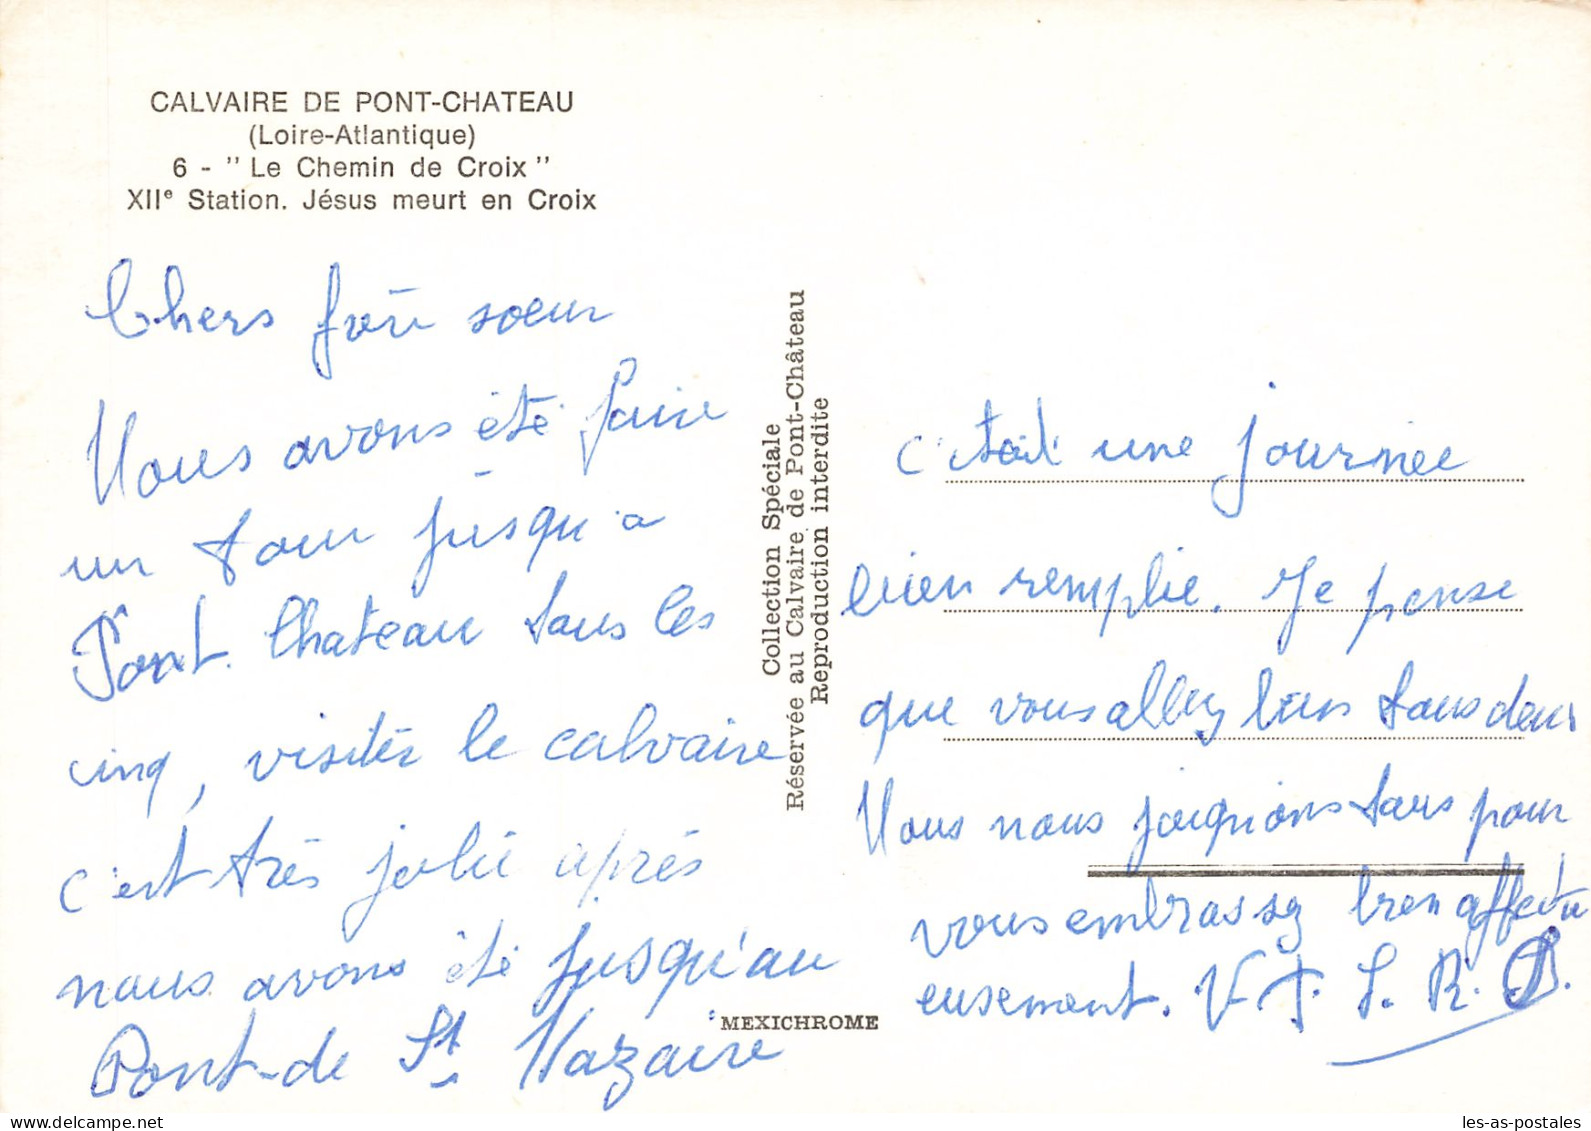 CALVAIRE DE PONT-CHATEAU
(Loire-Atlantique)
6 - " Le Chemin de Croix "
XIIe Station. Jésus meurt en Croix
Chers frère soeur
Nous avons été faire
un tour jusqu'a
Pont. Chateau tous les
cinq, visiter le calvaire
c'est très jolie après
nous avons été jusqu'au
Pont-de St Nazaire
Collection Spéciale
Réservée au Calvaire de Pont-Château
Reproduction interdite
MEXICHROME
c'etait une journée
bien remplie. Je pense
que vous allez bien tous deux
Nous nous joignions tous pour
vous embrassez bien affectu
eusement. V. J. S. R. B.
les-as-postales